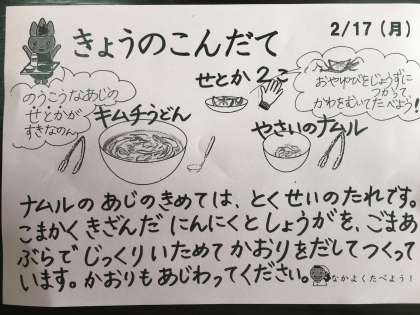 きょうのこんだて
2/17（月）
のうこうなあじの
せとかが
すきなのん
せとか2こ
おやゆびをじょうずに
つかって
かわをむいてたべよう！
キムチうどん
やさいのナムル
ナムルのあじのきめては、とくせいのたれです。
こまかくきざんだにんにくとしょうがを、ごまあ
ぶらでじっくりいためてかおりをだしてつくって
います。かおりもあじわってください。
なかよくたべよう！